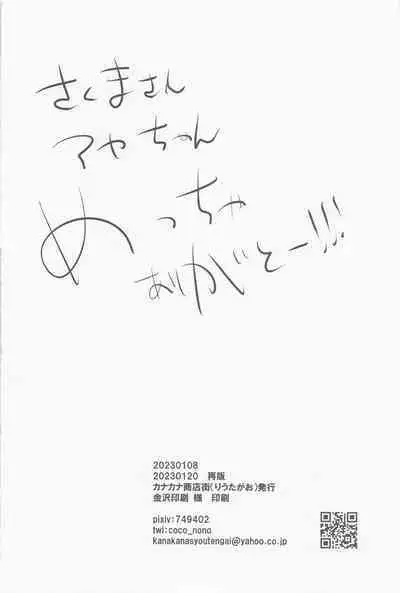 さくまさん
アヤちゃん
めっちゃ
ありがとー!!!
20230108
20230120 再版
カナカナ商店街(りうたがお)発行
金沢印刷 様 印刷
pixiv:749402
twi:coco_nono
kanakanasyoutengai@yahoo.co.jp